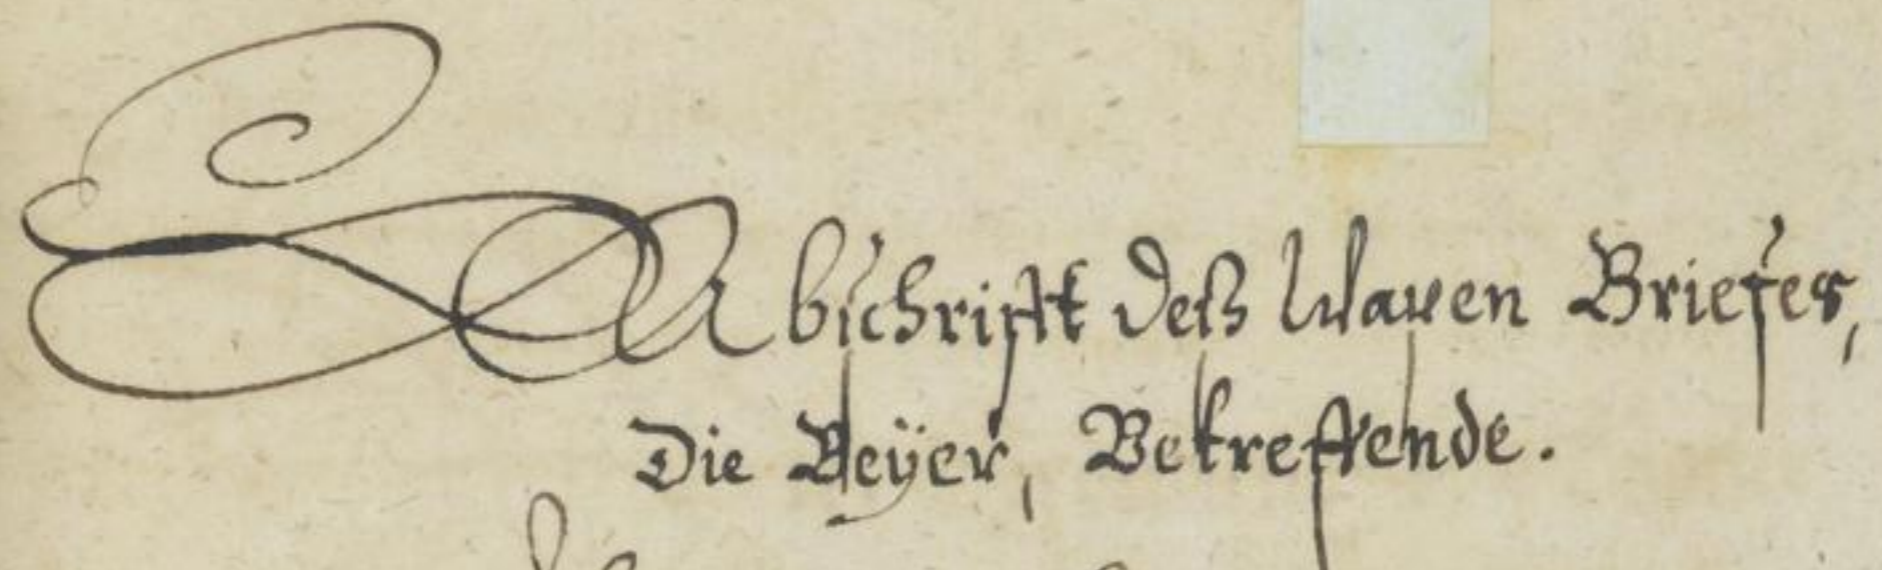 Abschrifft deß Wapen Briefes,
Die Beÿer, Betreffende.